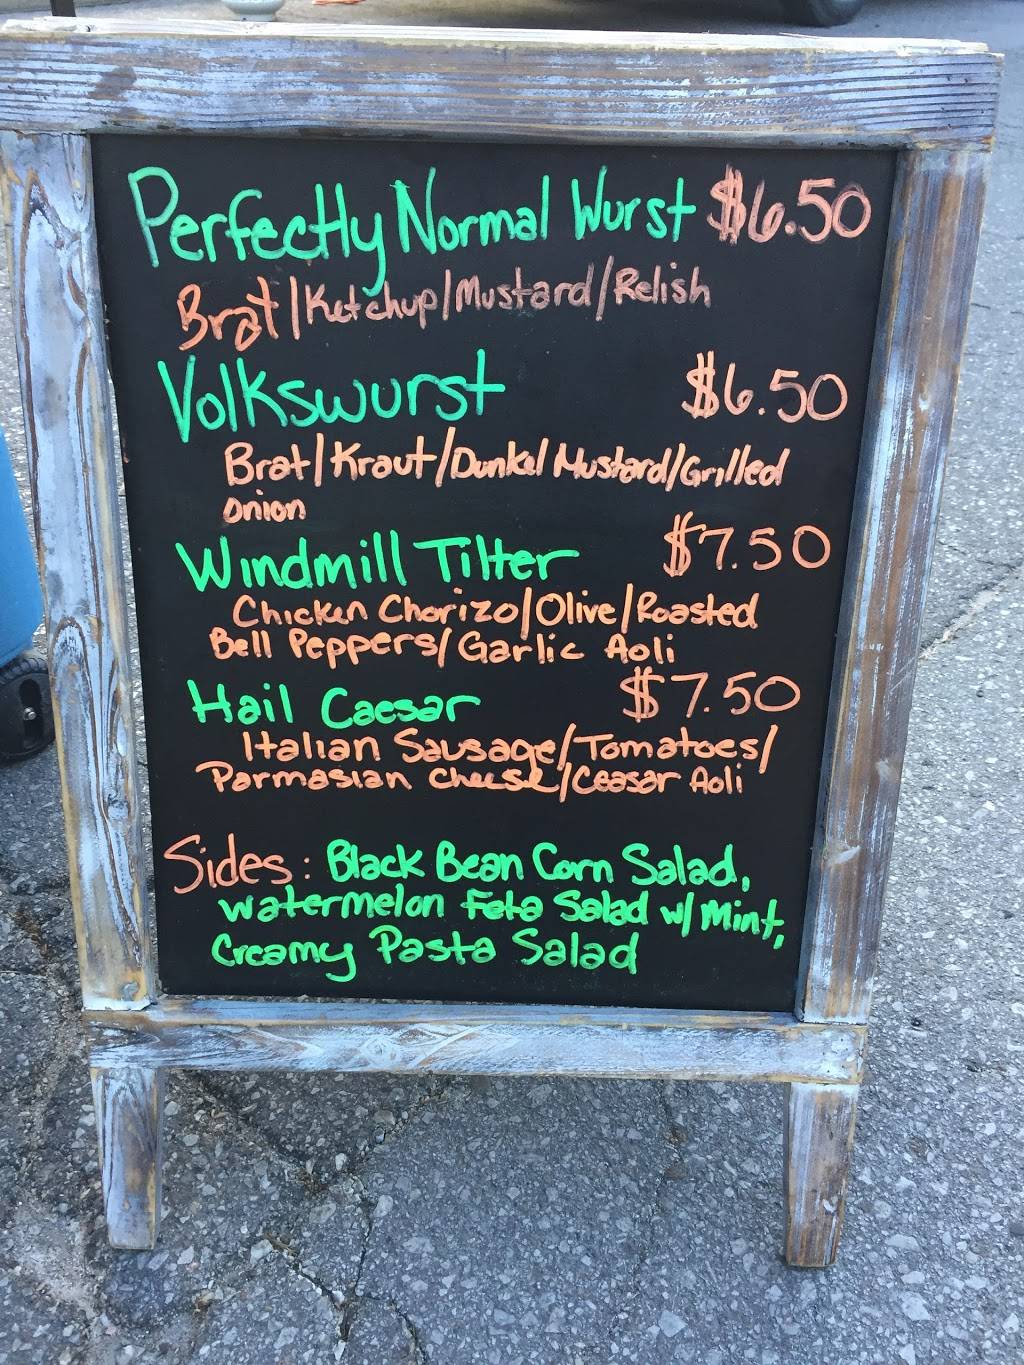 Perfectly Normal Wurst $6.50
Brat/Ketchup/Mustard/Relish
Volkswurst $6.50
Brat/Kraut/Dunkel Mustard/Grilled
onion
Windmill Tilter $7.50
Chicken Chorizo/Olive/Roasted
Bell Peppers/Garlic Aoli
Hail Caesar $7.50
Italian Sausage/Tomatoes/
Parmasian Cheese/Ceasar Aoli
Sides: Black Bean Corn Salad,
watermelon Feta Salad w/ Mint,
Creamy Pasta Salad